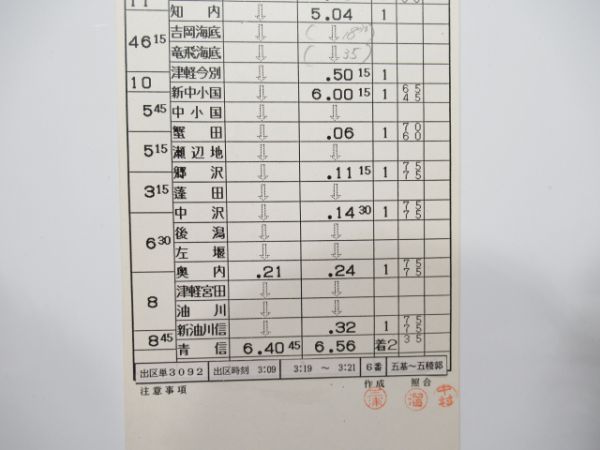 11
知内 ⇩ 5.04 1
46 15
吉岡海底 ⇩ (⇩ 18)
竜飛海底 ⇩ (⇩ 35)
津軽今別 ⇩ .50 15 1
10
新中小国 ⇩ 6.00 15 1 65 45
5 45
中小国 ⇩ ⇩
蟹田 ⇩ .06 1 70 60
5 15
瀬辺地 ⇩ ⇩
郷沢 ⇩ .11 15 1 75 75
3 15
蓬田 ⇩ ⇩
中沢 ⇩ .14 30 1 75 75
6 30
後潟 ⇩ ⇩
左堰 ⇩ ⇩
奥内 .21 .24 1 75 75
8
津軽宮田 ⇩ ⇩
油川 ⇩ ⇩
新油川信 ⇩ .32 1 75 75
8 45
青信 6.40 45 6.56 着2 35
出区単3092 出区時刻 3:09 3:19 ～ 3:21 6番 五基～五稜郭
注意事項 作成 照合
中村